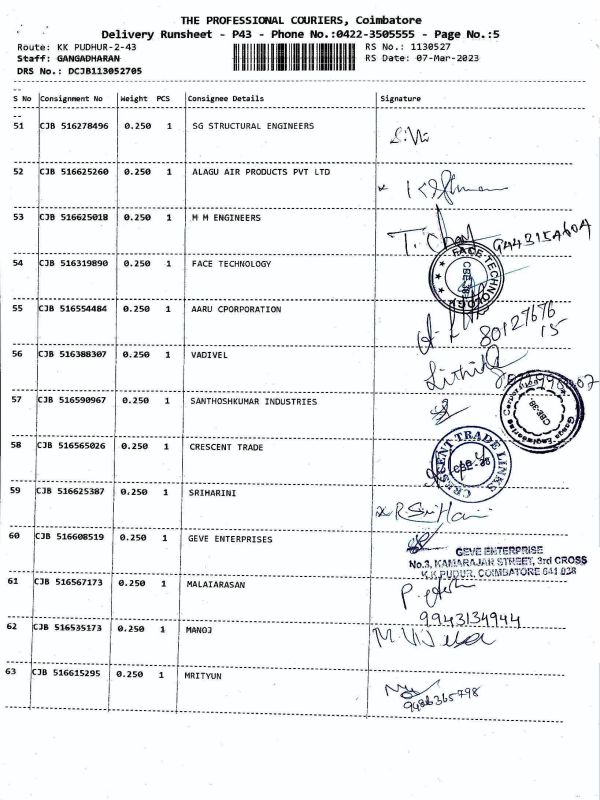 THE PROFESSIONAL COURIERS, Coimbatore
Delivery Runsheet - P43 - Phone No.:0422-3505555 - Page No.:5
Route: KK PUDHUR-2-43 RS No.: 1130527
Staff: GANGADHARAN RS Date: 07-Mar-2023
DRS No.: DCJB113052705
S No Consignment No Weight PCS Consignee Details Signature
51 CJB 516278496 0.250 1 SG STRUCTURAL ENGINEERS
52 CJB 516625260 0.250 1 ALAGU AIR PRODUCTS PVT LTD
53 CJB 516625018 0.250 1 M M ENGINEERS
54 CJB 516319890 0.250 1 FACE TECHNOLOGY
FACE TECHNOLOGY
CBE-38
55 CJB 516554484 0.250 1 AARU CPORPORATION
80127676
15
56 CJB 516388307 0.250 1 VADIVEL
57 CJB 516590967 0.250 1 SANTHOSHKUMAR INDUSTRIES
Ganga Engineering Corporation
CBE-38
58 CJB 516565026 0.250 1 CRESCENT TRADE
CRESCENT TRADE LINKS
CBE-38
59 CJB 516625387 0.250 1 SRIHARINI
60 CJB 516608519 0.250 1 GEVE ENTERPRISES
GEVE ENTERPRISE
No.3, KAMARAJAR STREET, 3rd CROSS
K.K.PUDUR, COIMBATORE 641 038
61 CJB 516567173 0.250 1 MALAIARASAN
9943134944
62 CJB 516535173 0.250 1 MANOJ
63 CJB 516615295 0.250 1 MRITYUN
9486365798